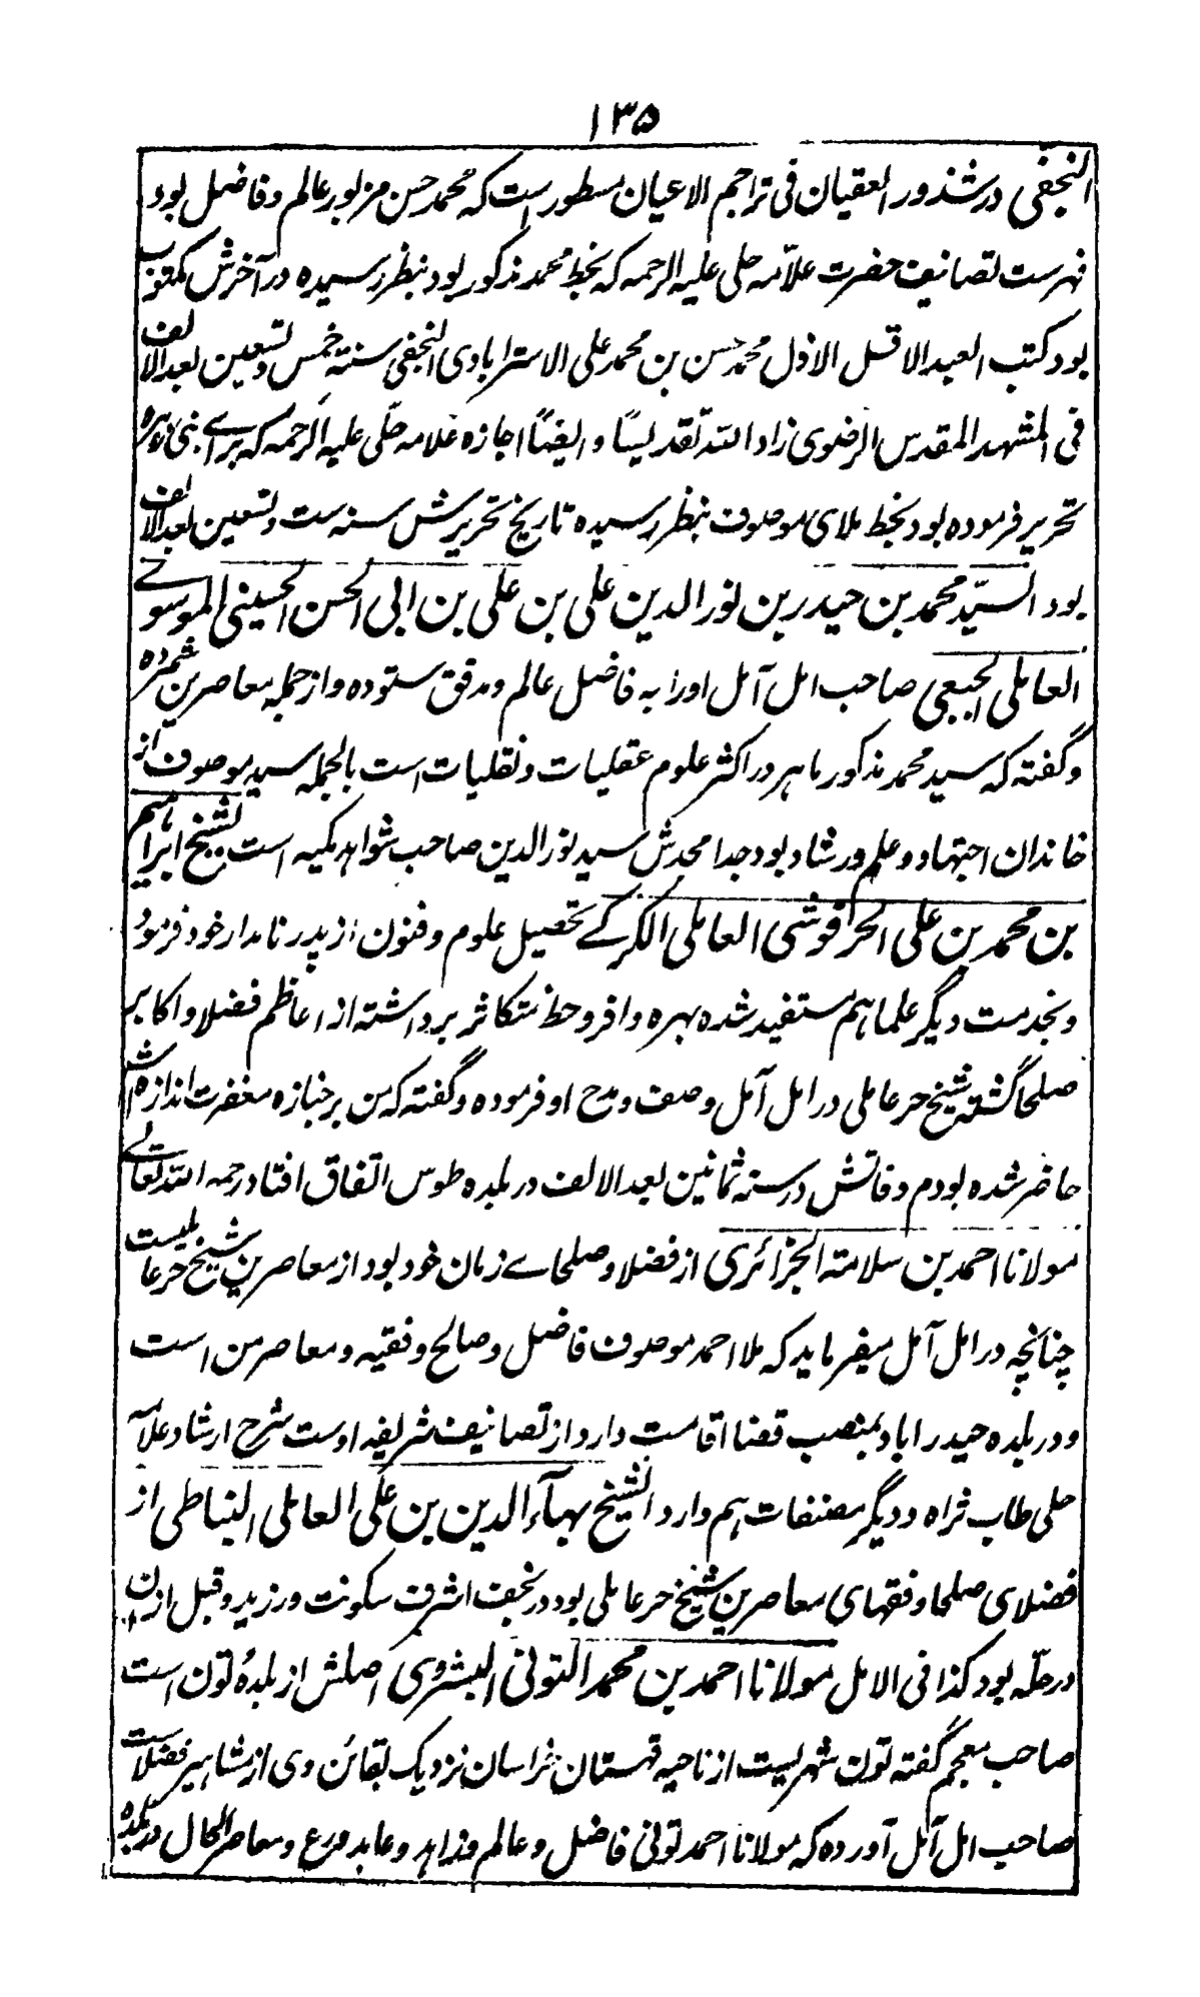 ۱۳۵
النجفی در شذور العقیان فی تراجم الاعیان مسطور است که محمد حسن مزبور عالم و فاضل بود
فهرست تصانیف حضرت علّامه حلی علیه الرحمه که بخط محمد مذکور بود بنظر رسیده در آخرش مکتوب
بود کتب العبد الاقل الاذل محمد حسن بن محمد علی الاسترابادی النجفی سنة خمس و تسعین بعد الالف
فی المشهد المقدس الرضوی زاد الله تقدیسًا و ایضًا اجازه علامه حلّی علیه الرحمه که برای بنی زهره
تحریر فرموده بود بخط ملای موصوف بنظر رسیده تاریخ تحریرش سنه ست و تسعین بعد الالف
بود السیّد محمد بن حیدر بن نور الدین علی بن علی بن ابی الحسن الحسینی الموسوے
العاملی الجبعی صاحب امل آمل اورا به فاضل عالم و مدقق ستوده و از جمله معاصرین شمرده
و گفته که سید محمد مذکور ماهر در اکثر علوم عقلیات و نقلیات است بالجمله سید موصوف از
خاندان اجتهاد و علم و رشاد بود جد امجدش سید نور الدین صاحب شواهد مکیه است الشیخ ابراهیم
بن محمد بن علی الحرفوشی العاملی الکرکے تحصیل علوم و فنون از پدر نامدار خود فرمود
و بخدمت دیگر علما هم مستفید شده بهره وافر و حظ متکاثر برداشته از اعاظم فضلا و اکابر
صلحا گشته شیخ حر عاملی در امل آمل وصف و مدح او فرموده و گفته که من بر جنازه مغفرت اندازه اش
حاضر شده بودم وفاتش در سنه ثمانین بعد الالف در بلده طوس اتفاق افتاد رحمه الله تعالے
مولانا احمد بن سلامته الجزائری از فضلا و صلحاے زمان خود بود از معاصرین شیخ حر عاملیست
چنانچه در امل آمل میفرماید که ملا احمد موصوف فاضل و صالح و فقیه و معاصر من است
و در بلده حیدراباد بمنصب قضا اقامت دارد از تصانیف شریفه اوست شرح ارشاد علامه
حلی طاب ثراه و دیگر مصنفات هم دارد الشیخ بهآء الدین بن علی العاملی النباطی از
فضلای صلحا و فقهای معاصرین شیخ حر عاملی بود در نجف اشرف سکونت ورزید و قبل ازین
در حلّه بود کذا فی الامل مولانا احمد بن محمد التونی البشروی اصلش از بلدهٔ تون است
صاحب معجم گفته تون شهریست از ناحیه قهستان خراسان نزدیک بقائن وی از مشاهیر فضلاست
صاحب امل آمل آورده که مولانا احمد تونی فاضل و عالم و زاهد و عابد و ورع و معاصر الحال در بلده